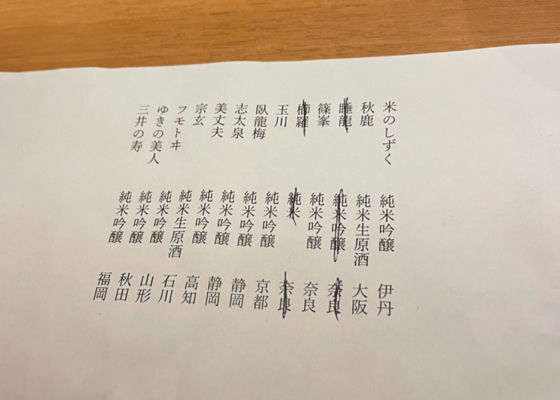 米のしずく 純米吟醸 伊丹
秋鹿 純米生原酒 大阪
睡龍 純米吟醸 奈良
篠峯 純米吟醸 奈良
櫛羅 純米 奈良
玉川 純米吟醸 京都
臥龍梅 純米吟醸 静岡
志太泉 純米吟醸 静岡
美丈夫 純米吟醸 高知
宗玄 純米生原酒 石川
フモトヰ 純米吟醸 山形
ゆきの美人 純米吟醸 秋田
三井の寿 純米吟醸 福岡